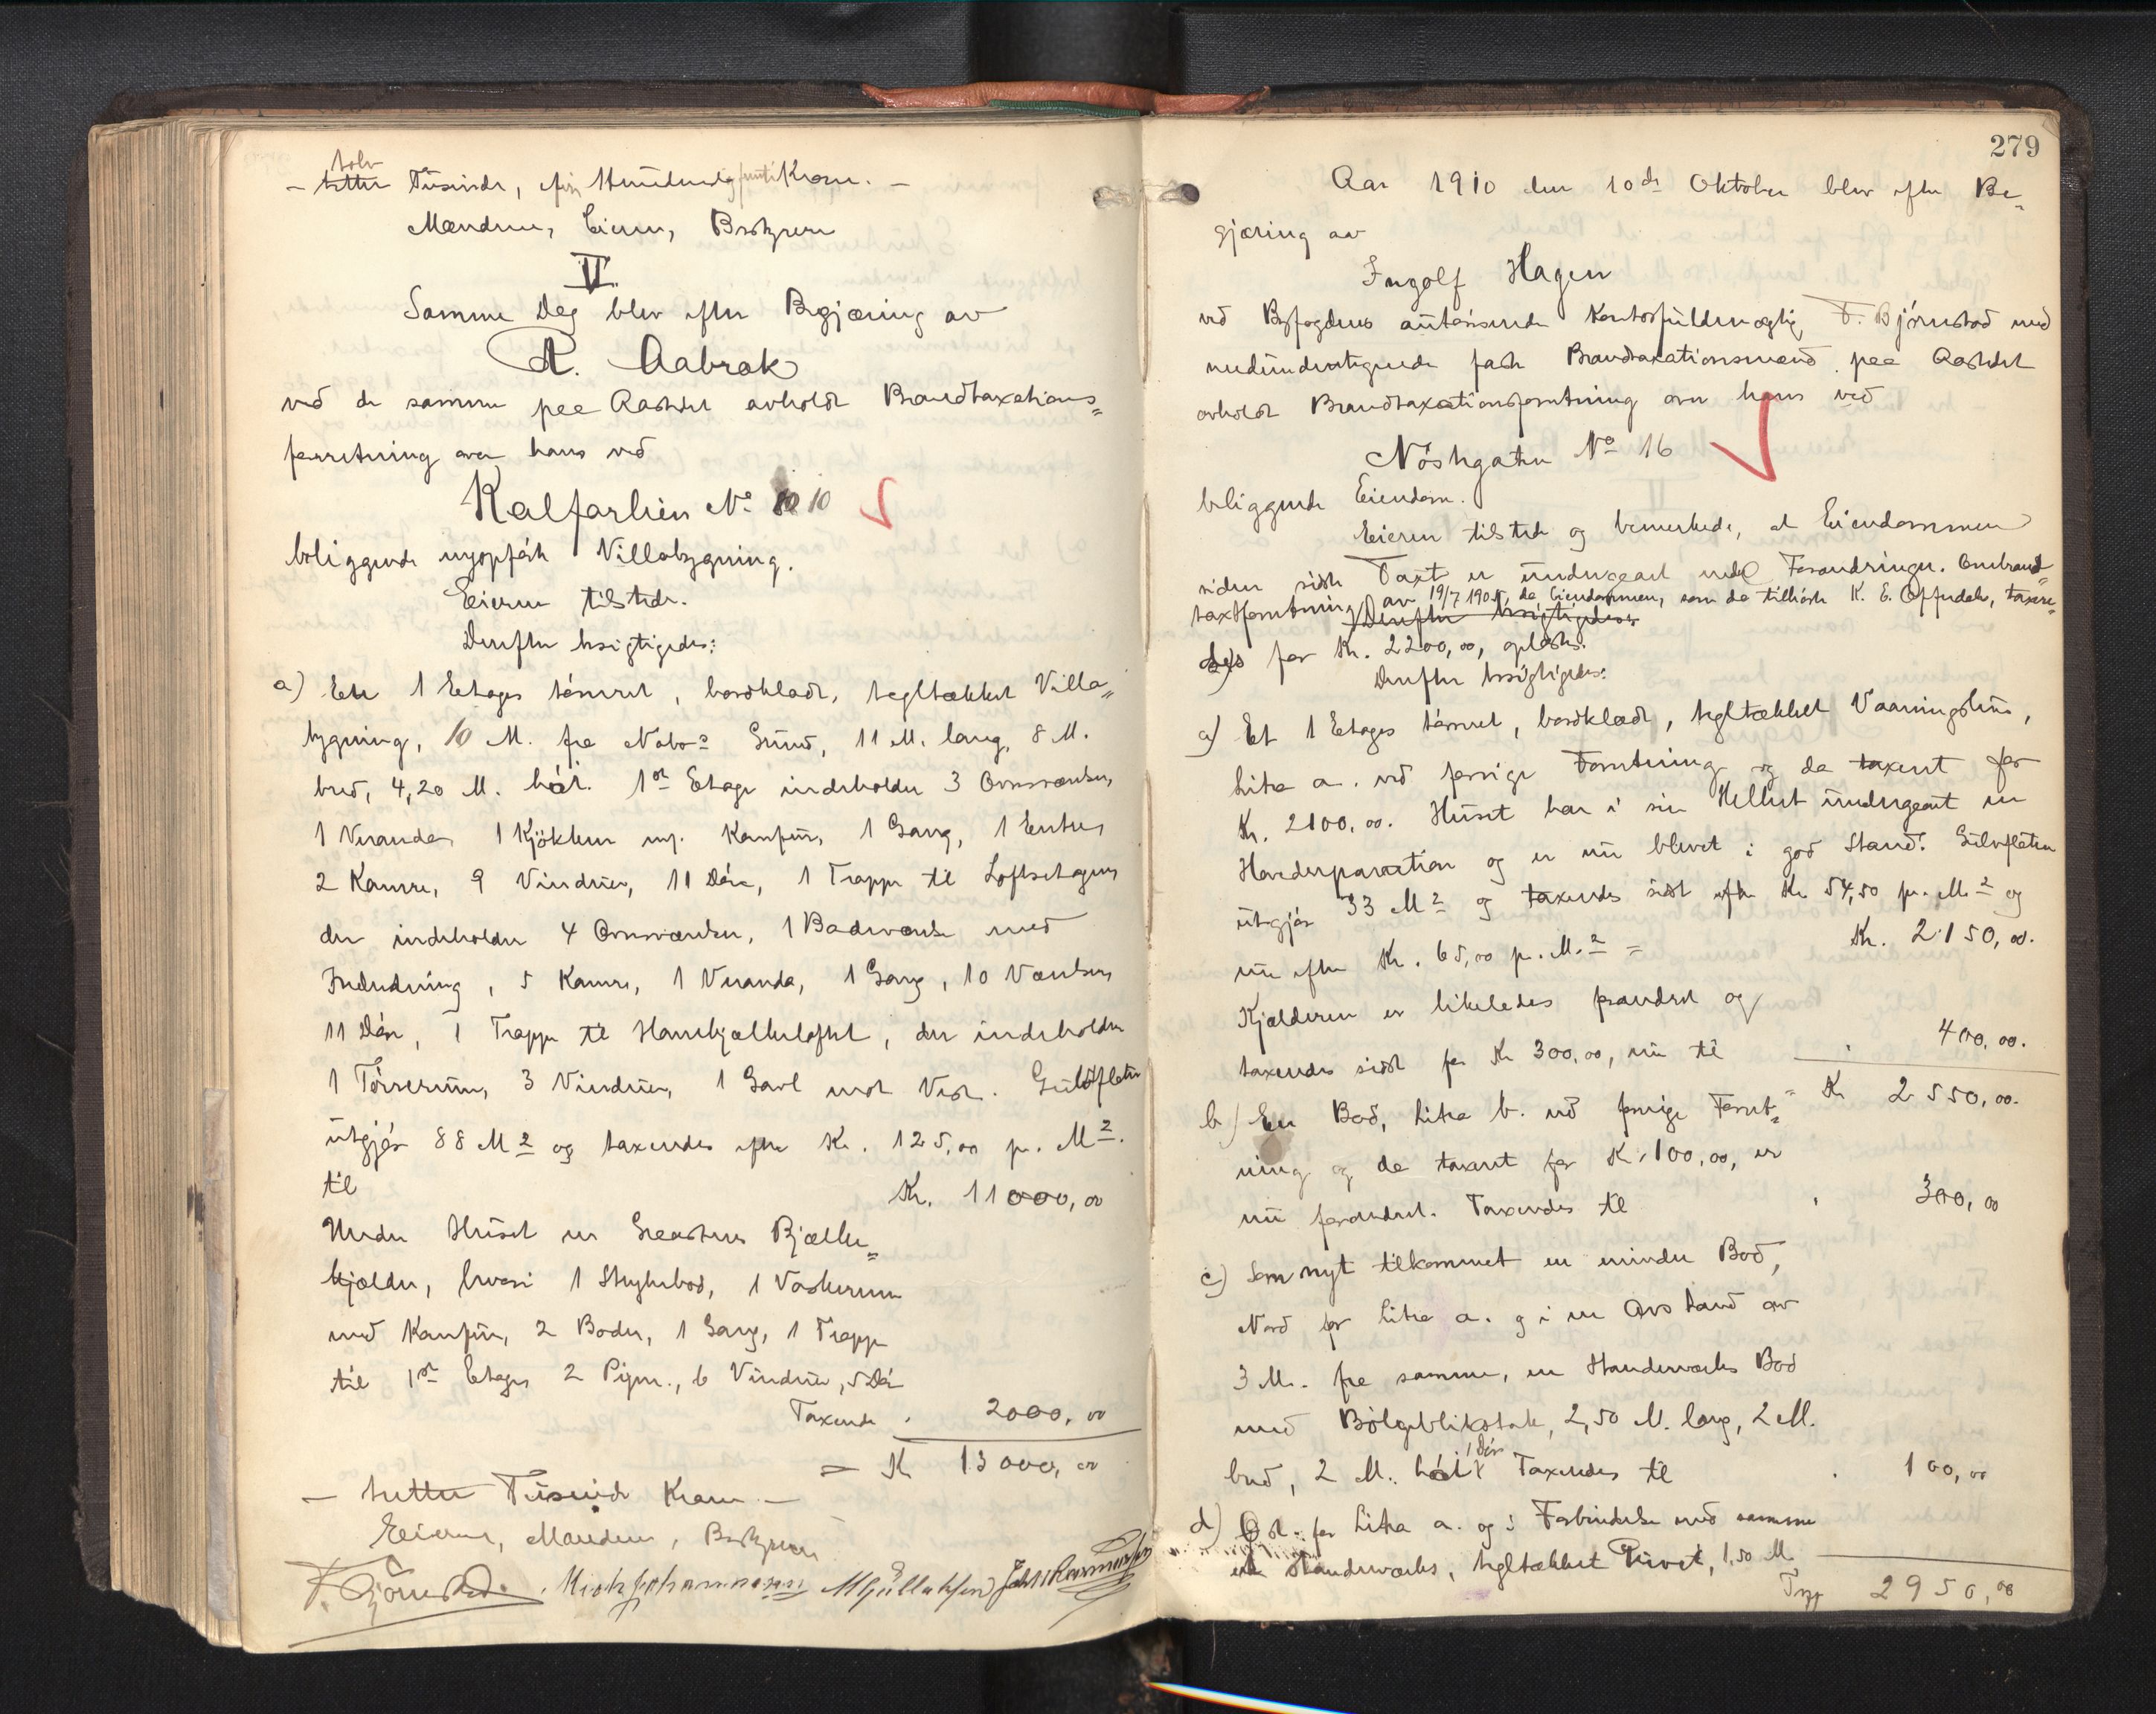 tolv
- tretten Tusinde, fir Hundred og femti Kroner. -
Mændene, Eieren, Bestyreren
VI.
Samme Dag blev efter Begjæring av
A. Aabrek
ved de samme paa Aastedet avholdt Brandtaxations=
forretning over hans ved
Kalfarlien No 10 10
beliggende nyopført Villabygning.
Eieren tilstede.
Derefter besigtigedes:
a) En 1 Etages tømret, bordklædt, tegltækket Villa=
bygning, 10 M. fra Nabos Grund, 11 M. lang, 8 M.
bred, 4,20 M. høi. 1ste Etage indeholder 3 Ovnsværelser,
1 Veranda, 1 Kjøkken m/. Komfur, 1 Gang, 1 Entre,
2 Kamre, 9 Vinduer, 11 Døre, 1 Trappe til Loftsetagen,
der indeholder 4 Ovnsværelser, 1 Badeværelse med
Indredning, 5 Kamre, 1 Veranda, 1 Gang, 10 Vinduer,
11 Døre, 1 Trappe til Hanebjælkeloftet, der indeholder
1 Tørrerum, 3 Vinduer, 1 Gavl mot Vest. Gulvfladen
utgjør 88 M2 og taxeredes efter Kr. 125,00 pr. M2.
til Kr. 11000,00
Under Huset en Graastens Bjælke=
kjelder, hvori 1 Strykebod, 1 Vaskerum
med Komfur, 2 Boder, 1 Gang, 1 Trappe
til 1ste Etage, 2 Piper, 6 Vinduer, 5 Døre
Taxeredes . 2000,00
= Kr 13000,00
- tretten Tusinde Kroner -
Eieren, Mændene, Bestyreren
F. Bjørnestad. Mich Johannessen M Gullaksen Joh M Rasmussen
279
Aar 1910 den 10de Oktober blev efter Be=
gjæring av
Ingolf Hagen
ved Byfogdens autoriserede Kontorfuldmægtig F. Bjørnestad med
nedenundertegnede faste Brandtaxationsmænd paa Aastedet
avholdt Brandtaxationsforretning over hans ved
Nøstegaten No 16
beliggende Eiendom.
Eieren tilstede og bemerkede, at Eiendommen
siden sidste Taxt er undergaaet nedel Forandringer. Ombrand=
taxtforretning av 19/7 1905, da Eiendommen, som da tilhørte K. E. Offerdal, taxere=
Derefter besigtigedes
des for Kr. 2200,00, oplæst.
Derefter besigtigedes:
a) Et 1 Etages tømret, bordklædt, tegltækket Vaaningshus,
Litra a. ved forrige Forretning og da taxeret for
Kr. 2100,00. Huset har i sin Helhet undergaaet en
Hovedreparation og er nu blevet i god Stand. Gulvflaten
utgjør 33 M2 og taxeredes sidst efter Kr 54,50 pr. M2 og
nu efter Kr. 65,00 pr. M.2 = Kr. 2150,00.
Kjælderen er likeledes forandret og
taxeredes sidst for Kr 300,00, nu til . 400,00.
= Kr 2550,00.
b) En Bod, Litra b. ved forrige Forret=
ning og da taxeret for Kr 100,00, er
nu forandret. Taxeredes til . 300,00
c) Som nyt tilkommet en mindre Bod,
Nord for Litra a. og i en Avstand av
3 M. fra samme, en Standerværks Bod
med Bølgebliktak, 2,50 M. lang, 2 M.
bred, 2 M. høi, 1 Dør Taxeredes til . 100,00
d) Øst for Litra a. og i Forbindelse med samme
et Standerværks, tegltækket Privet, 1,50 M.
Trsp 2950,00